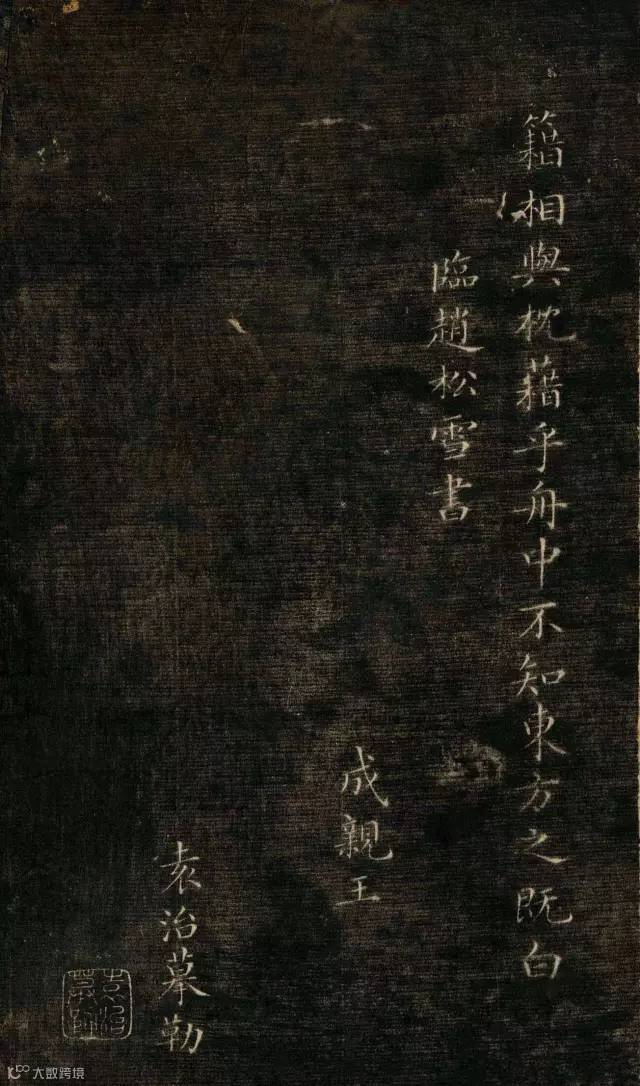 籍相與枕藉乎舟中不知東方之既白
臨趙松雪書
成親王
袁治摹勒
大数跨境